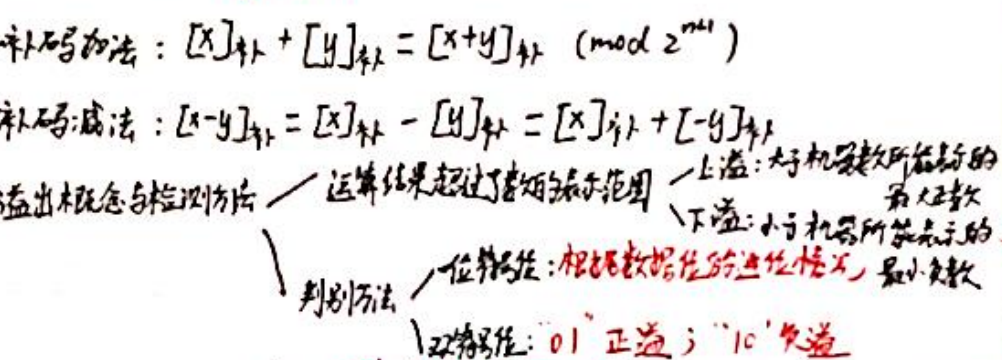 补码加法：[x]补 + [y]补 = [x+y]补 (mod 2^{n+1})
补码减法：[x-y]补 = [x]补 - [y]补 = [x]补 + [-y]补
溢出概念与检测方法
运算结果超过了数的表示范围
上溢：大于机器数所能表示的最大正数
下溢：小于机器所能表示的最小负数
判别方法
一位符号位：根据数据位的进位情况
双符号位：“01” 正溢；“10” 负溢